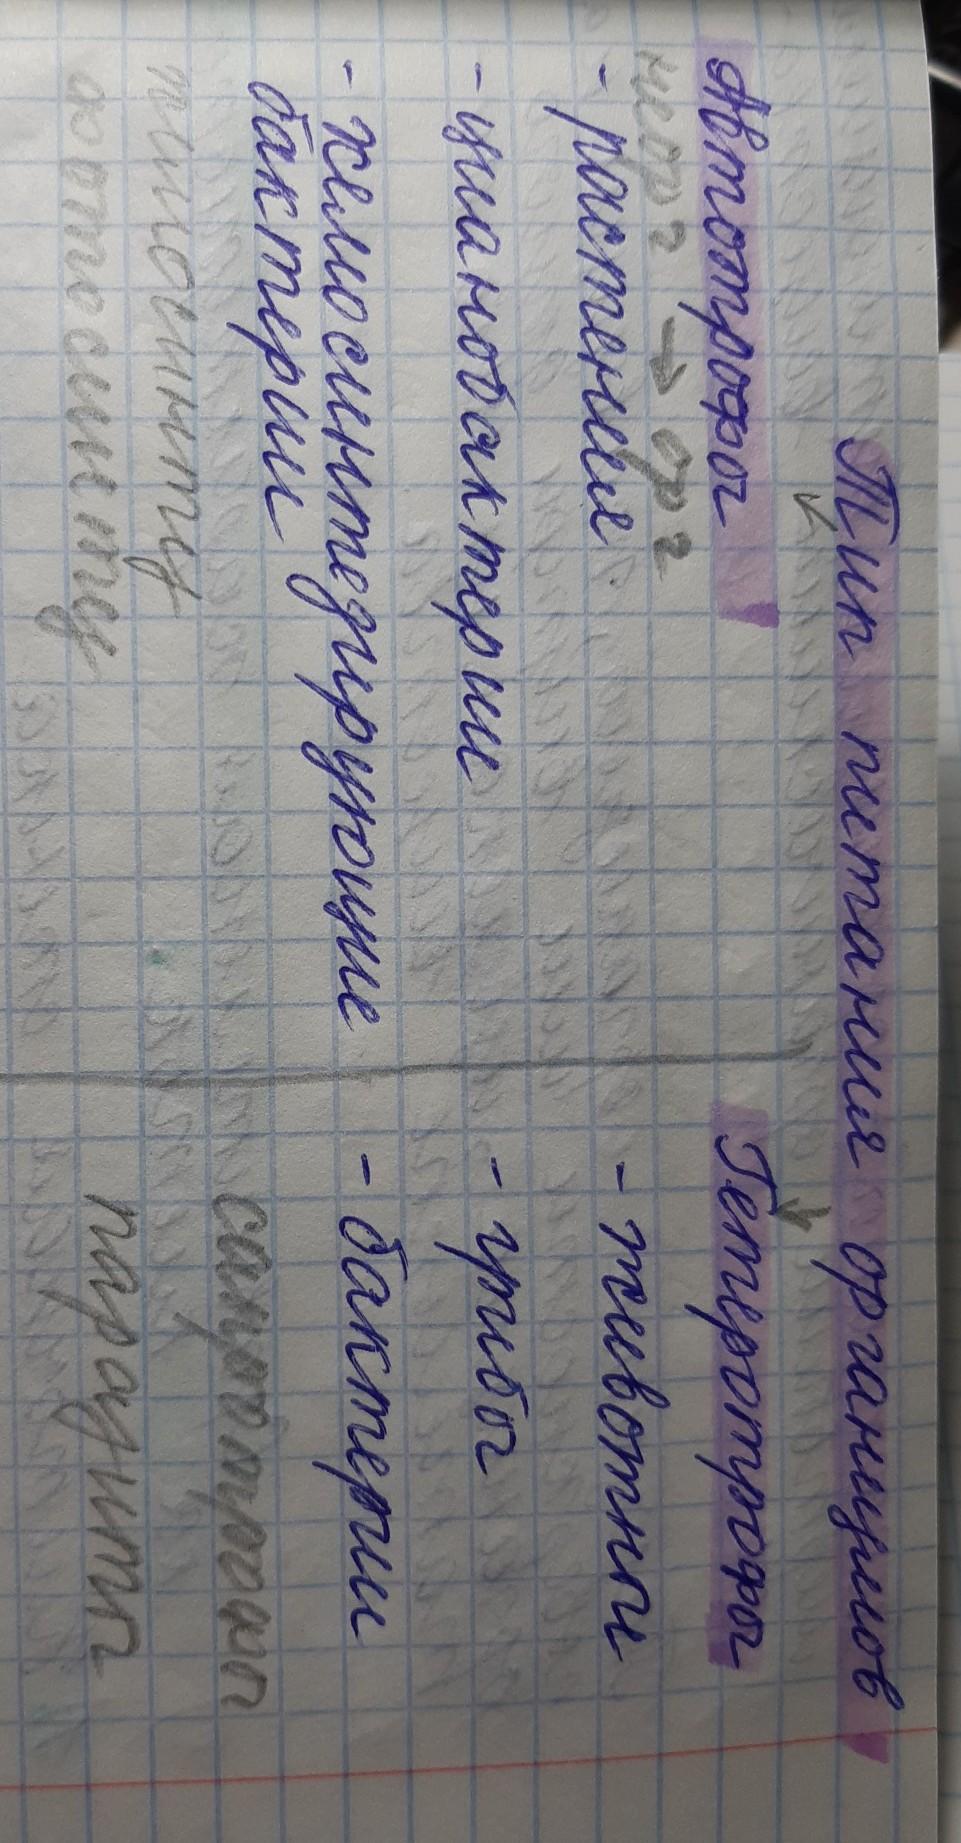 Тип питания организмов
Автотрофы
неор? → ор?
- растения
- цианобактерии
- хемосинтезирующие
бактерии
хемосинтез
фотосинтез
Гетеротрофы
- животные
- грибы
- бактерии
сапротрофы
паразиты